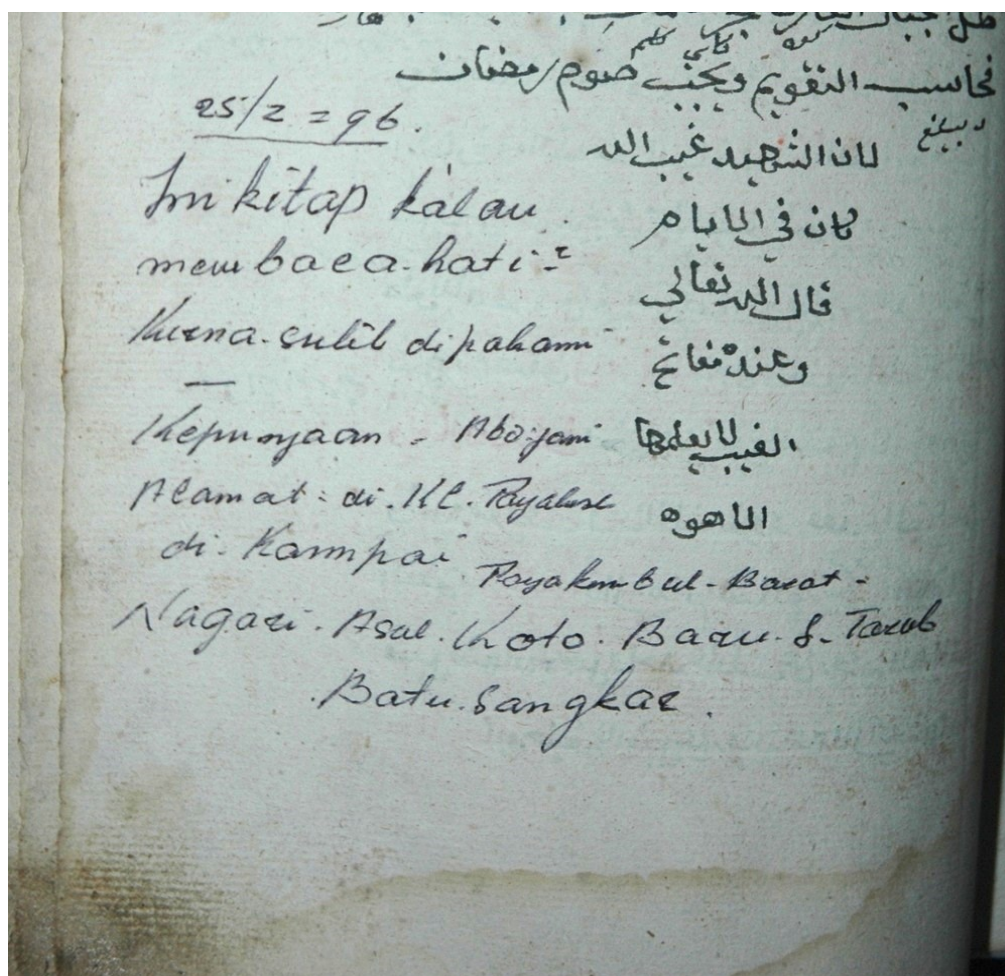 فحاسب التقويم ويجب صوم رمضان
لان الشهيد غيب الله
كان في الايام
قال الله تعالي
وعنده مفاتح
الغيب لا يعلمها
الا هوه
25/2 = 96.
Ini kitap kalau.
membaca. hati-²
Kerna. sulit dipahami
Kepunyaan - Aboyani
Alamat: di. KL. Payakum
di. Kampai Payakumbul - Barat -
Nagari. Asal. Koto. Baru. S. Tarab
Batu. Sangkar.